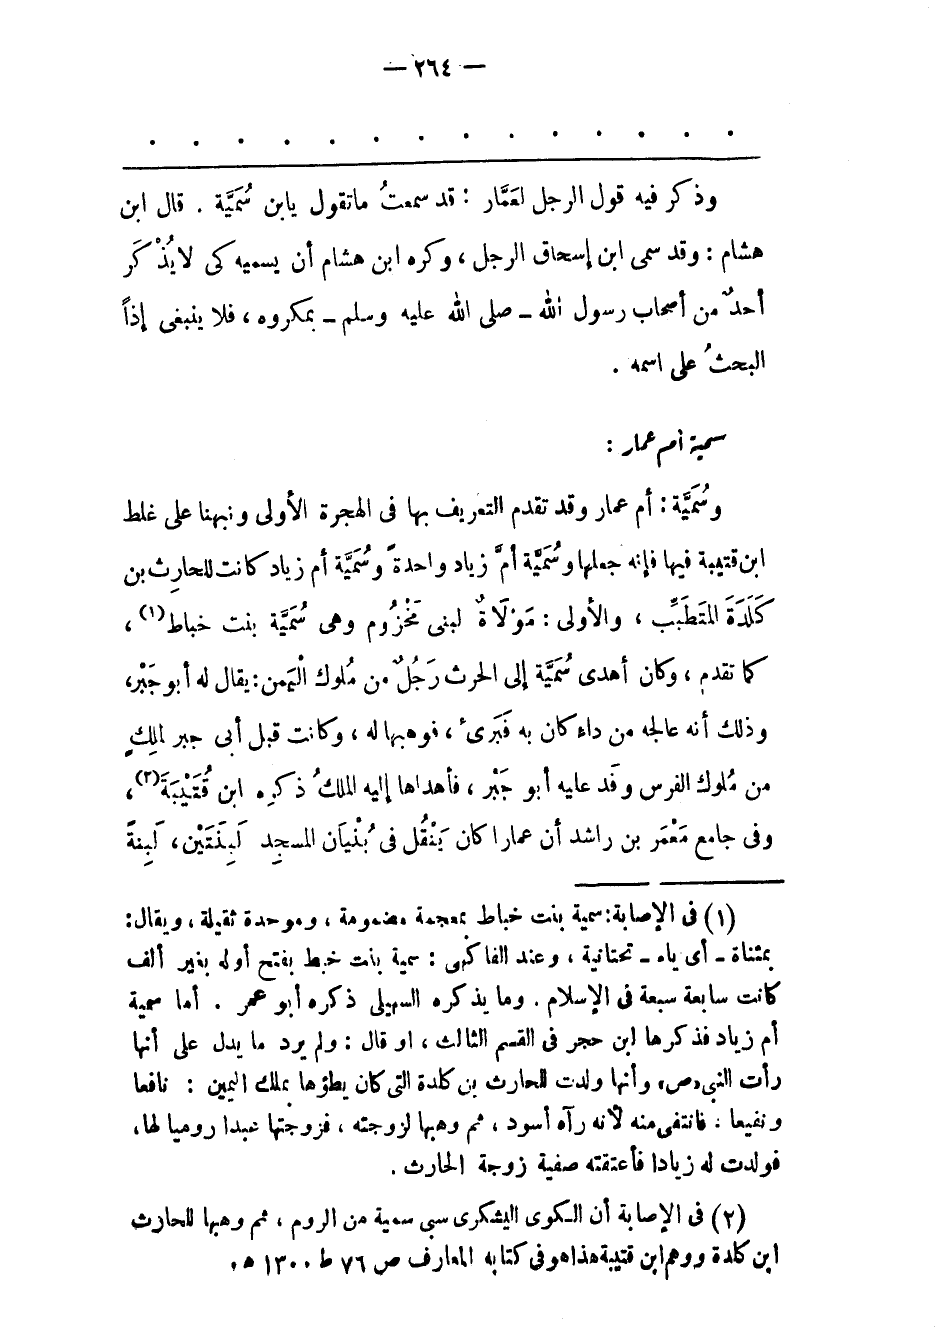 — ٢٦٤ —
. . . . . . . . . . . . . .
وذكر فيه قول الرجل لعَمَّار : قد سمعتُ ماتقول يابن سُمَيَّة . قال ابن
هشام : وقد سمى ابن إسحاق الرجل ، وكره ابن هشام أن يسميه كى لا يُذْكَر
أحدٌ من أصحاب رسول الله ـ صلى الله عليه وسلم ـ بمكروه ، فلا ينبغى إذاً
البحثُ على اسمه .
سمية أم عمار :
وسُمَيَّة : أم عمار وقد تقدم التعريف بها فى الهجرة الأولى ونبهنا على غلط
ابن قتيبة فيها فإنه جعلها وسُمَيَّة أمَّ زياد واحدةً وسُمَيَّة أم زياد كانت للحارِث بن
كَلَدَةَ المتَطَبِّب ، والأولى : مَوْلَاةٌ لبنى مَخْزُوم وهى سُمَيَّة بنت خباط(١) ،
كما تقدم ، وكان أهدى سُمَيَّة إلى الحرث رَجُلٌ من مُلوك الْيَمن : يقال له أبو جَبْر،
وذلك أنه عالجه من داء كان به فَبَرىء ، فوهبها له ، وكانت قبل أبى جبر لملِكٍ
من مُلوك الفرس وفَد عليه أبو جَبْر ، فأهداها إليه الملكُ ذكره ابن قُتَيْبَةَ(٢) ،
وفى جامع مَعْمَر بن راشد أن عمارا كان يَنْقُل فى بُنْيَان المسجِد لَبِنَتَيْن ، لَبِنةً
(١) فى الإصابة : سمية بنت خباط بمعجمة مضمومة ، وموحدة ثقيلة ، ويقال :
بمثناة ـ أى ياء ـ تحتانية ، وعند الفاكهى : سمية بنت خبط بفتح أوله بغير ألف
كانت سابعة سبعة فى الإسلام . وما يذكره السهيلى ذكره أبو عمر . أما سمية
أم زياد فذكرها ابن حجر فى القسم الثالث ، او قال : ولم يرد ما يدل على أنها
رأت النبى «ص» وأنها ولدت للحارث بن كلدة التى كان يطؤها بملك اليمين : نافعا
ونفيعا ، فانتفى منه لأنه رآه أسود ، ثم وهبها لزوجته ، فزوجتها عبدا روميا لها،
فولدت له زيادا فأعتقته صفية زوجة الحارث .
(٢) فى الإصابة أن الكوى اليشكرى سبى سمية من الروم ، ثم وهبها للحارث
ابن كلدة ووهم ابن قتيبة هذا هو فى كتابه المعارف ص ٧٦ ط ١٣٠٠ ه .